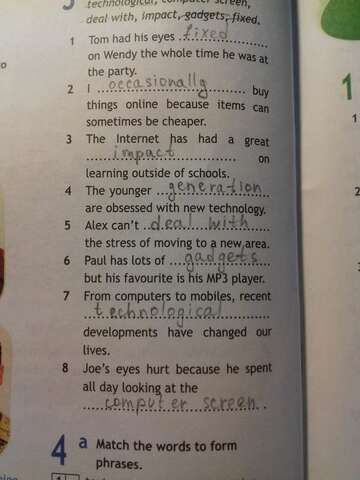 technological, computer screen,
deal with, impact, gadgets, fixed.
1 Tom had his eyes fixed
on Wendy the whole time he was at
the party.
2 I occasionally buy
things online because items can
sometimes be cheaper.
3 The Internet has had a great
impact on
learning outside of schools.
4 The younger generation
are obsessed with new technology.
5 Alex can't deal with
the stress of moving to a new area.
6 Paul has lots of gadgets
but his favourite is his MP3 player.
7 From computers to mobiles, recent
technological
developments have changed our
lives.
8 Joe's eyes hurt because he spent
all day looking at the
computer screen.
4 a Match the words to form
phrases.
1
1
2